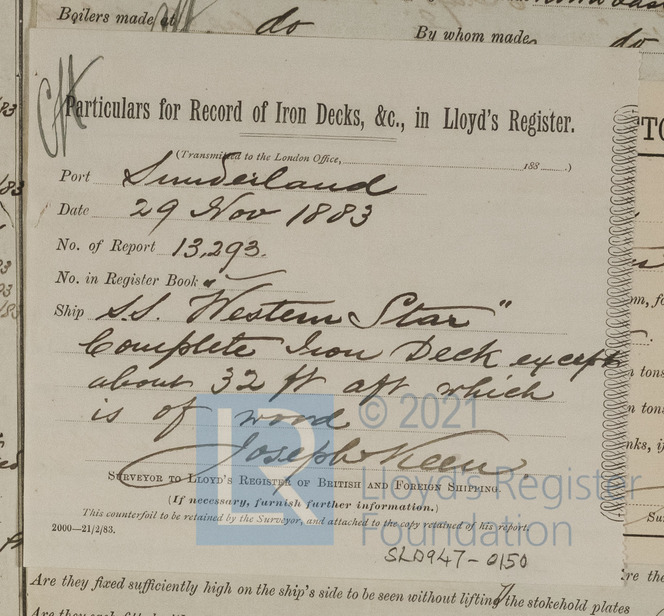 Boilers made at do By whom made do
Particulars for Record of Iron Decks, &c., in Lloyd's Register.
(Transmitted to the London Office, 188 .)
Port Sunderland
Date 29 Nov 1883
No. of Report 13,293.
No. in Register Book
Ship S.S. "Western Star"
Complete Iron Deck except
about 32 ft aft which
is of wood
Joseph Keen.
SURVEYOR TO LLOYD'S REGISTER OF BRITISH AND FOREIGN SHIPPING.
(If necessary, furnish further information.)
This counterfoil to be retained by the Surveyor, and attached to the copy retained of his report.
2000—21/2/83.
SLD947-0150
© 2021
LR
Lloyd's Register
Foundation
Are they fixed sufficiently high on the ship's side to be seen without lifting the stokehold plates